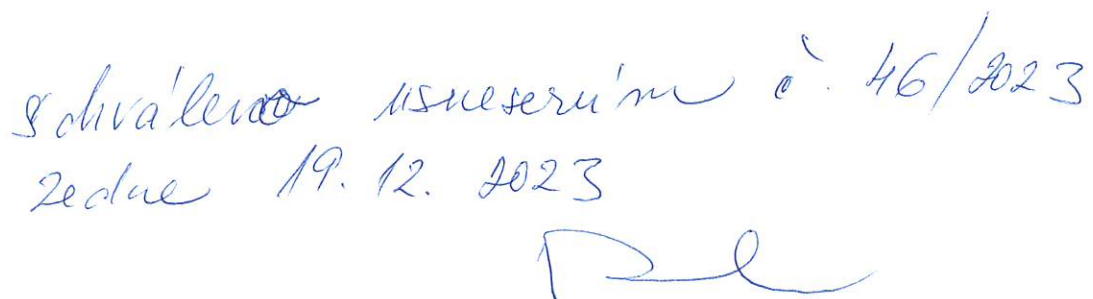 schváleno usnesením č. 46/2023
ze dne 19. 12. 2023